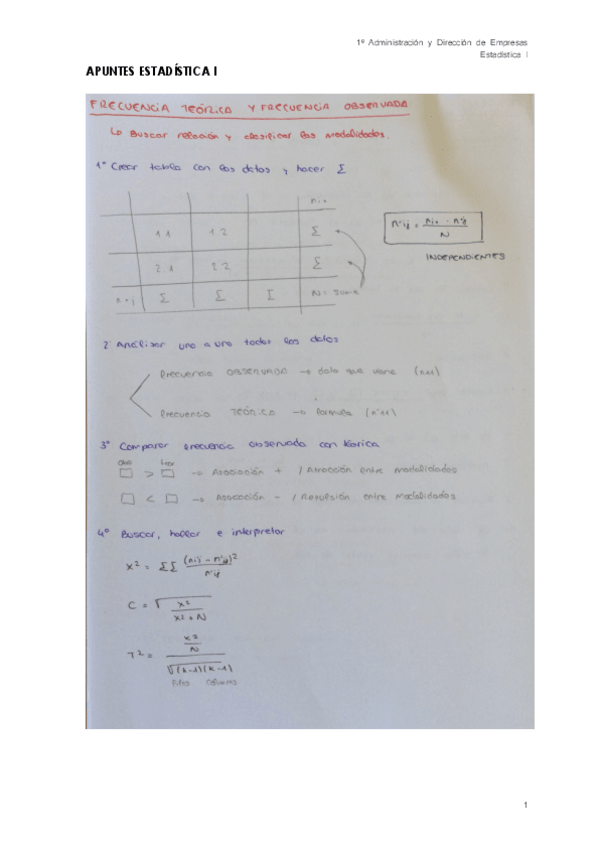 1º Administración y Dirección de Empresas
Estadística I
APUNTES ESTADÍSTICA I
FRECUENCIA TEÓRICA Y FRECUENCIA OBSERVADA
Buscar relación y clasificar las modalidades.
1º Crear tabla con los datos y hacer Σ
ni•
1.1 1.2 Σ
2.1 2.2 Σ
n•j Σ Σ Σ N = suma
n'ij = ni• · n•j / N
INDEPENDIENTES
2º Analizar uno a uno todos los datos
Frecuencia OBSERVADA → dato que viene (n11)
Frecuencia TEÓRICA → fórmula (n'11)
3º Comparar frecuencia observada con teórica
obs teor
□ > □ → Asociación + / Atracción entre modalidades
□ < □ → Asociación - / Repulsión entre modalidades
4º Buscar, hallar e interpretar
X² = ΣΣ (nij - n'ij)² / n'ij
C = √ X² / X² + N
T² = X² / N / √(h-1)(k-1)
filas columnas
1